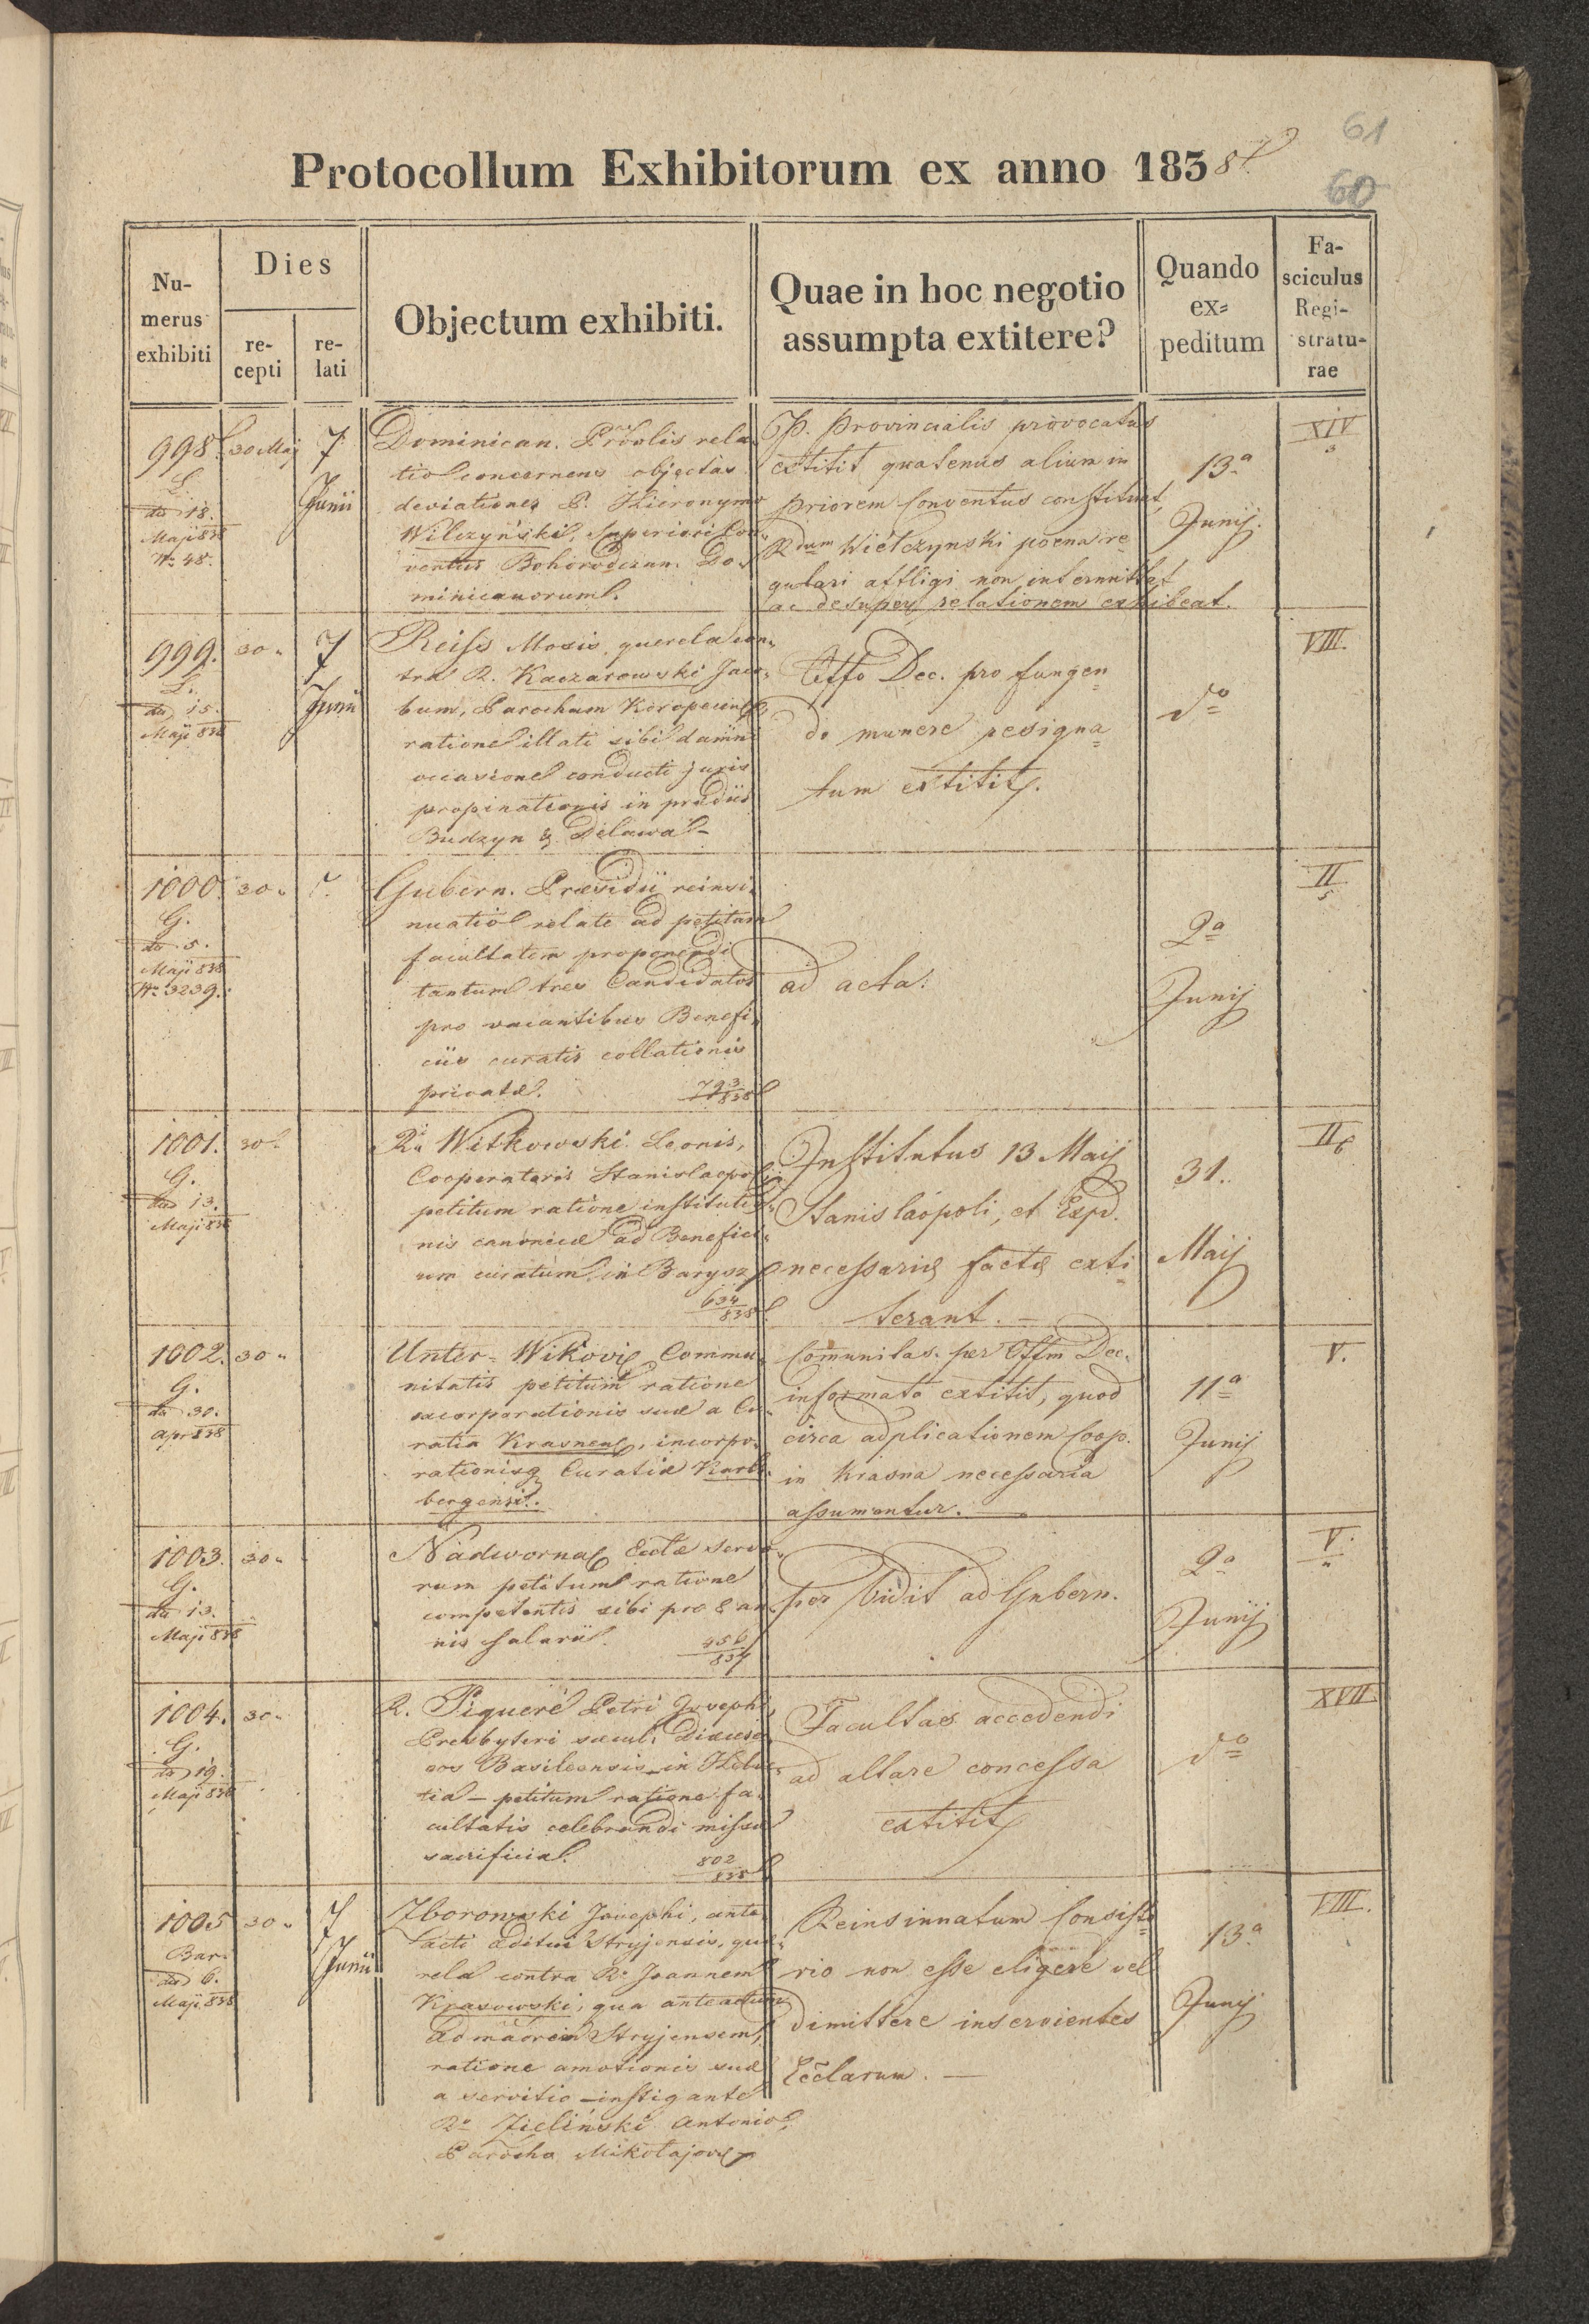 61
Protocollum Exhibitorum ex anno 1838
60
Numerus exhibiti
Dies
recepti
relati
Objectum exhibiti.
Quae in hoc negotio
assumpta extitere?
Quando
ex=
peditum
Fa-
sciculus
Regi-
stratu-
rae
998. 30 Maj 7 Junii
L.
dto 18.
Maji 838
Nr. 48.
Dominican. Provolis rela
tio concernens objectas
deviationes P. Hieronymo
Wilczyński, Superiori Con
ventus Bohorodczan. Do
minicanorum.
P. Provincialis provocatus
extitit quatenus alium in
priorem Conventus constituat,
Rdum Wielczynski poena re
gulari affligi non intermittat
ac desuper relationem exhibeat.
13a
Junij.
XIV
3
999. 30 " 7 Junii
L.
dto 15.
Maji 838
Reiss Mosis, querela con
tra R. Kaczarowski Jaco
bum, Parochum Koropecens
ratione illati sibi damni
occasione conducti juris
propinationis in prædiis
Budzyn & Delawa
Offo Dec. pro fungen
do munere resigna
tum extitit.
do
VIII.
1000. 30 "
G.
dto 5.
Maji 838
Nr. 3239.
Gubern. Præsidii reinsi
nuatio relate ad petitam
facultatem proponendi
tantum tres Candidatos
pro vacantibus Benefi
ciis curatis collationis
privatæ.
793
838
ad acta.
2a
Junij
II
5
1001. 30
G.
dto 13.
Maji 838
R. Witkowski Leonis,
Cooperatoris Stanislaopolis
petitum ratione institutio
nis canonicæ ad Benefici
um curatum in Barysz
634
838
Institutus 13 Maij
Stanislaopoli, et Expd.
necessariæ factæ exti
terant. —
31.
Maij
II
6
1002. 30 "
G.
dto 30.
Apr 838
Unter-Wikovi Commu
nitatis petitum ratione
excorporationis suæ a Cu
ratia Krasnens, incorpo
rationisq Curatiæ Karls
bergensi.
Comunitas per Offm Dec.
informata extitit, quod
circa adplicationem Coop.
in Krasna necessaria
assumantur. —
11a
Junij
V.
1003. 30 "
G.
dto 13.
Maji 838
Nadwornae Ecclæ servo
rum petitum ratione
competentis sibi pro 8 an
nis salarii.
456
837
por Vidit ad Gubern.
2a
Junij
V.
1004. 30 "
G.
dto 19.
Maji 838
R. Piqueré Petri Josephi,
Presbyteri sæcul. Dioece
eos Basileensis in Helve
tia — petitum ratione fa
cultatis celebrandi missæ
sacrificia.
802
838
Facultas accedendi
ad altare concessa
extitit
do
XVII
1005 30 " 7 Junii
Bar.
dto 6.
Maji 838
Zborowski Josephi, ante
acti æditui Stryjensis, que
rela contra R. Joannem
Krasowski, qua anteactum
Admaorem Stryjensem,
ratione amotionis suæ
a servitio — instigante
R. Zieliński Antonio
Parocho Mikołajov
Reinsinuatum Consisto
rio non esse eligere vel
dimittere inservientes
Ecclarum. —
13a
Junij
VIII.